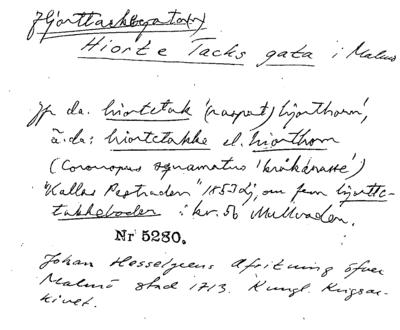 Hjorttacksgatan
Hiorte Tacks gata i Malmö
Jfr da. hiortetak (raspat) hjorthorn',
ä.da: hiortetakke el. hiorthorn
(Coronopus squamatus 'kråkkrasse')
"Kallas Pestraden" 1853 om fem hjorte-
takkeboder i kv. 56 Mullvaden.
Nr 5280.
Johan Hesselgrens Afritning öfver
Malmö stad 1713. Kungl. Krigsar-
kivet.